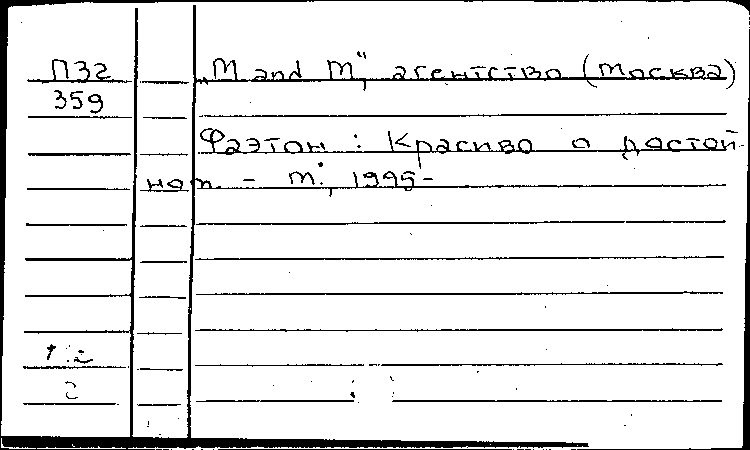 П32 „M and M“, агентство (Москва)
359
Фаэтон : Красиво о достой-
ном. - М., 1995-